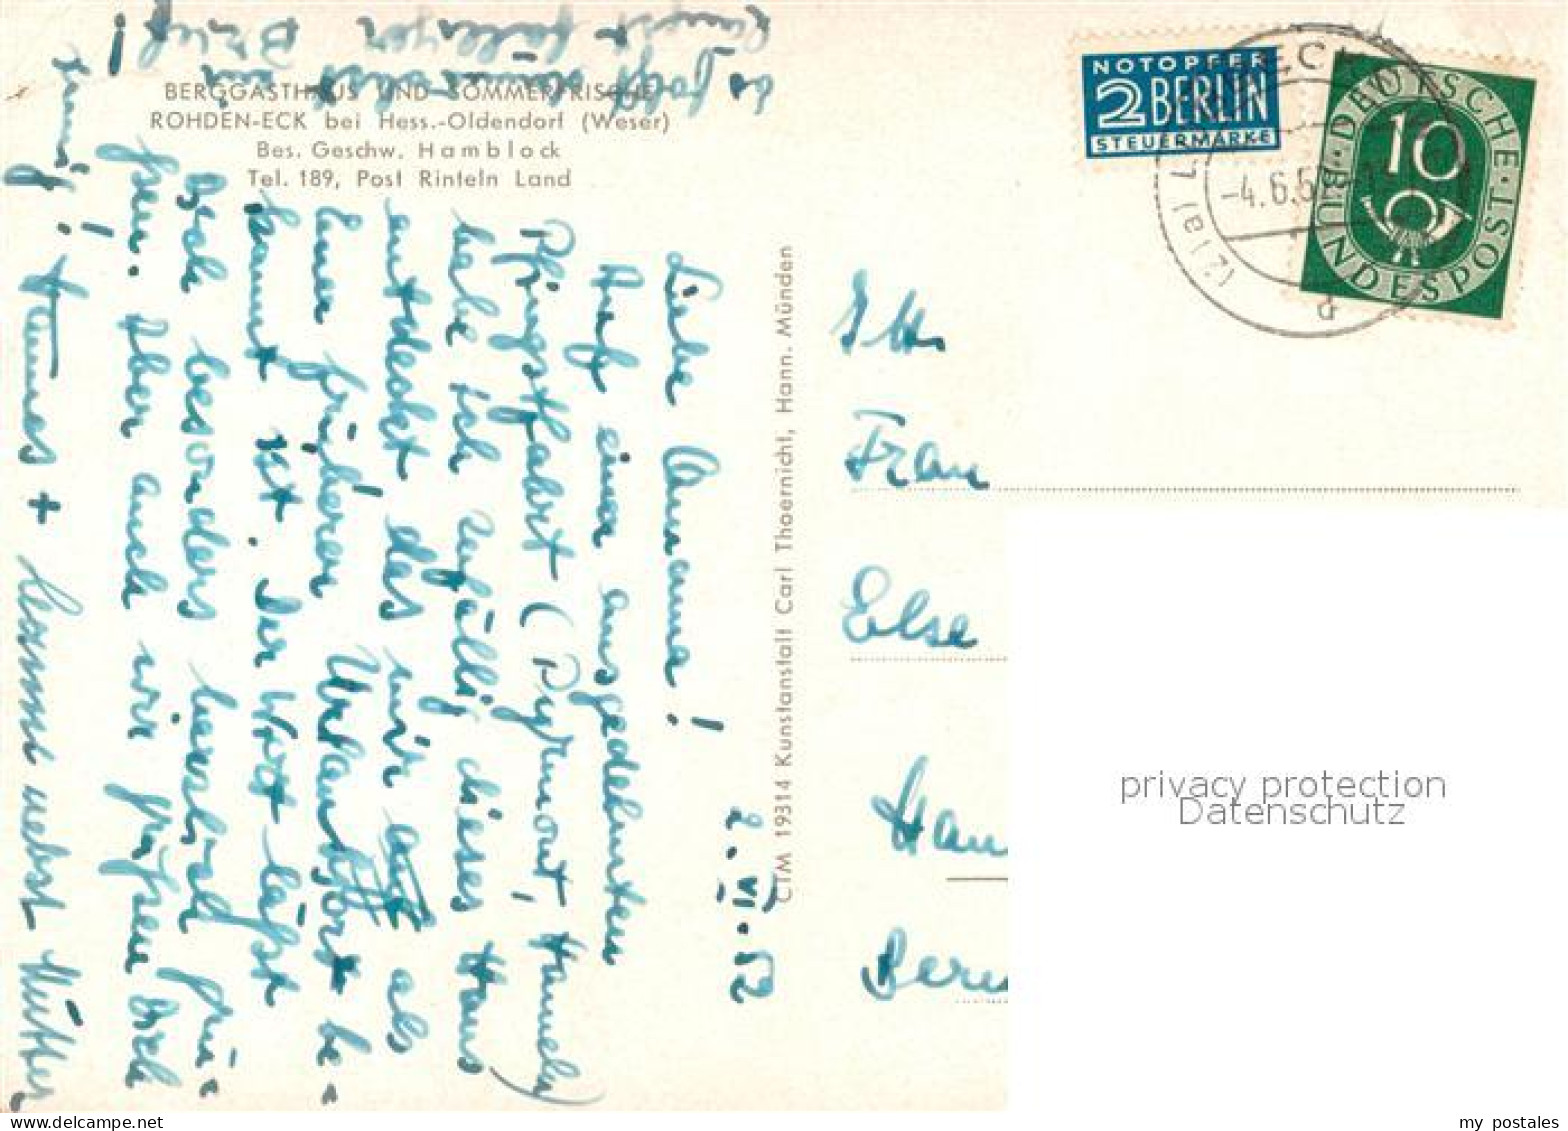 BERGGASTHAUS UND SOMMERFRISCHE
ROHDEN-ECK bei Hess.-Oldendorf (Weser)
Bes. Geschw. Hamblock
Tel. 189, Post Rinteln Land
NOTOPFER
2 BERLIN
STEUERMARKE
DEUTSCHE BUNDESPOST
10
-4.6.5
(21a)
d
2. VI. 52
Liebe Annemma!
Auf einer ausgedehnten
Pfingstfahrt (Pyrmont, Hameln)
habe ich zufällig dieses Haus
entdeckt, das mir als
Euer früherer Urlaubsort be-
kannt ist. Der Wirt läßt
Dich besonders herzlich grü-
ßen. Aber auch wir grüßen Dich
Hannes + nebst Mutter
Brief!
CTM 19314 Kunstanstalt Carl Thoericht, Hann. Münden
Frau
Else
Han
privacy protection
Datenschutz
my postales